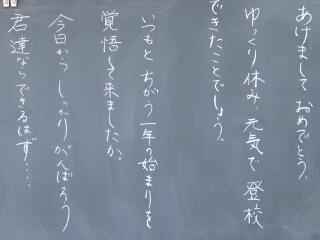 あけまして おめでとう。
ゆっくり休み、元気で 登校
できたことでしょう。
いつもと ちがう 一年の始まりを
覚悟して来ましたか。
今日から しっかり がんばろう
君達ならできるはず・・・・